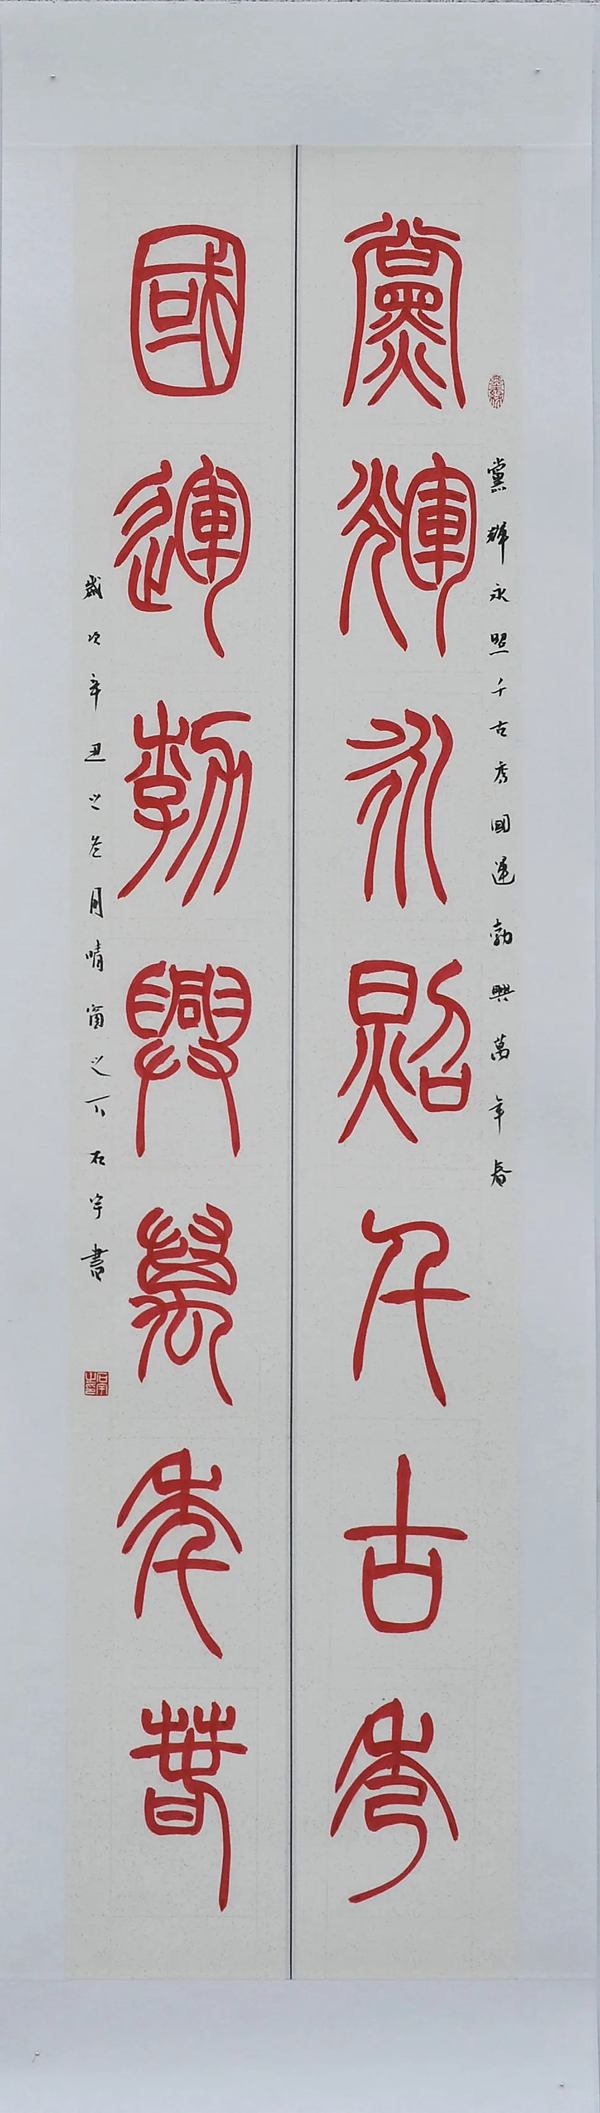 黨輝永照千古秀
國運勃興萬年春
黨輝永照千古秀國運勃興萬年春
歲次辛丑之冬月晴窗之下石宇書